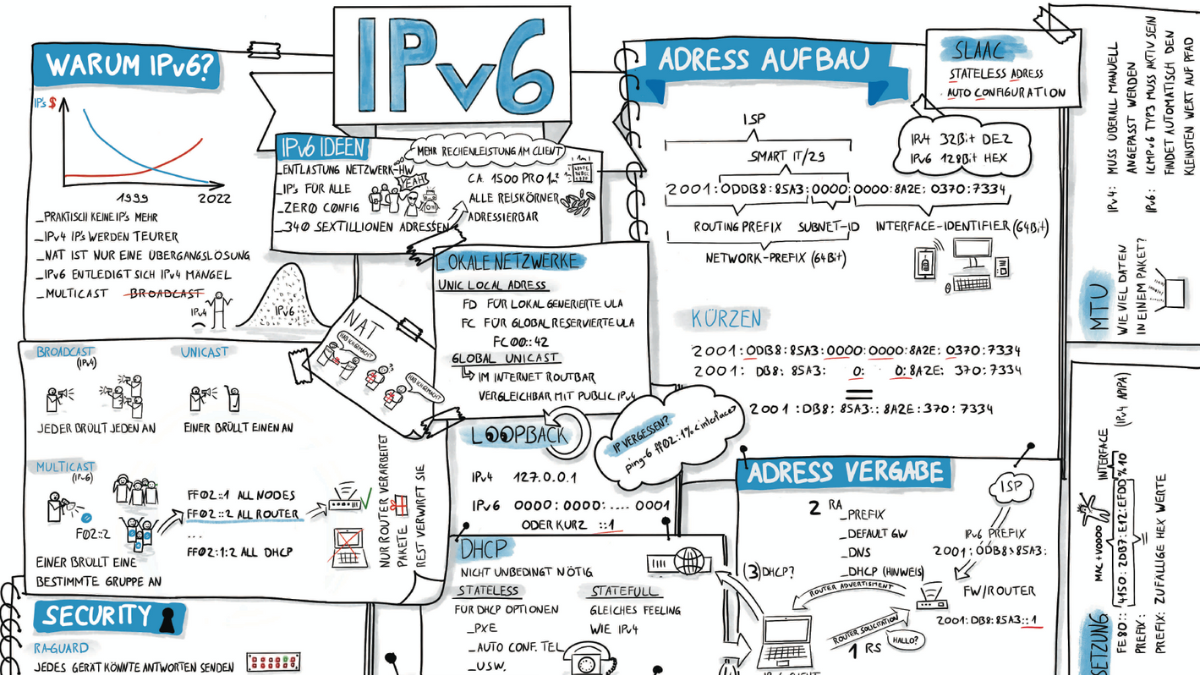 IPv6
WARUM IPv6?
IP's $
1999 2022
_PRAKTISCH KEINE IP'S MEHR
_IPv4 IP'S WERDEN TEURER
_NAT IST NUR EINE ÜBERGANGSLÖSUNG
_IPv6 ENTLEDIGT SICH IPv4 MANGEL
_MULTICAST BROADCAST
IPv4
IPv6
IPv6 IDEEN
MEHR RECHENLEISTUNG AM CLIENT
_ENTLASTUNG NETZWERK-HW
_IP'S FÜR ALLE
_ZERO CONFIG
_340 SEXTILLIONEN ADRESSEN
YEAH
CA. 1500 PRO
ALLE REISKÖRNER
ADRESSIERBAR
LOKALE NETZWERKE
UNIC LOCAL ADRESS
FD FÜR LOKAL GENERIERTE ULA
FC FÜR GLOBAL RESERVIERTE ULA
FC00::42
GLOBAL UNICAST
IM INTERNET ROUTBAR
VERGLEICHBAR MIT PUBLIC IPv4
NAT
BROADCAST
(IPv4)
JEDER BRÜLLT JEDEN AN
UNICAST
EINER BRÜLLT EINEN AN
MULTICAST
(IPv6)
F02::2
EINER BRÜLLT EINE
BESTIMMTE GRUPPE AN
FF02::1 ALL NODES
FF02::2 ALL ROUTER
...
FF02:1:2 ALL DHCP
NUR ROUTER VERARBEITET
PAKETE
REST VERWIRFT SIE
LOOPBACK
IPv4 127.0.0.1
IPv6 0000:0000:.... 0001
ODER KURZ ::1
IP VERGESSEN?
ping-6 ff02::1%<interface>
SECURITY
RA-GUARD
JEDES GERÄT KÖNNTE ANTWORTEN SENDEN
DHCP
NICHT UNBEDINGT NÖTIG
STATELESS
FÜR DHCP OPTIONEN
_PXE
_AUTO CONF. TEL
_U.S.W.
STATEFULL
GLEICHES FEELING
WIE IPv4
ADRESS AUFBAU
SLAAC
STATELESS ADRESS
AUTO CONFIGURATION
IPv4 32Bit DEZ
IPv6 128Bit HEX
ISP
SMART IT/29
2001:0DB8:85A3:0000:0000:8A2E:0370:7334
ROUTING PREFIX SUBNET-ID INTERFACE-IDENTIFIER (64Bit)
NETWORK-PREFIX (64Bit)
KÜRZEN
2001:0DB8:85A3:0000:0000:8A2E:0370:7334
2001: DB8: 85A3: 0: 0:8A2E: 370:7334
=
2001:DB8:85A3::8A2E:370:7334
ADRESS VERGABE
2 RA
_PREFIX
_DEFAULT GW
_DNS
_DHCP (HINWEIS)
(3) DHCP?
ROUTER ADVERTISMENT
ROUTER SOLICITATION
1 RS
HALLO?
ISP
IPv6 PREFIX
2001:0DB8:85A3:
FW/ROUTER
2001:DB8:85A3::1
MTU
WIE VIEL DATEN
IN EINEM PAKET?
IPv4: MUSS ÜBERALL MANUELL
ANGEPASST WERDEN
IPv6: ICMPv6 TYP3 MUSS AKTIV SEIN
FINDET AUTOMATISCH DEN
KLEINSTEN WERT AUF PFAD
SETZUNG
INTERFACE
PREFIX:
PREFIX: ZUFÄLLIGE HEX WERTE